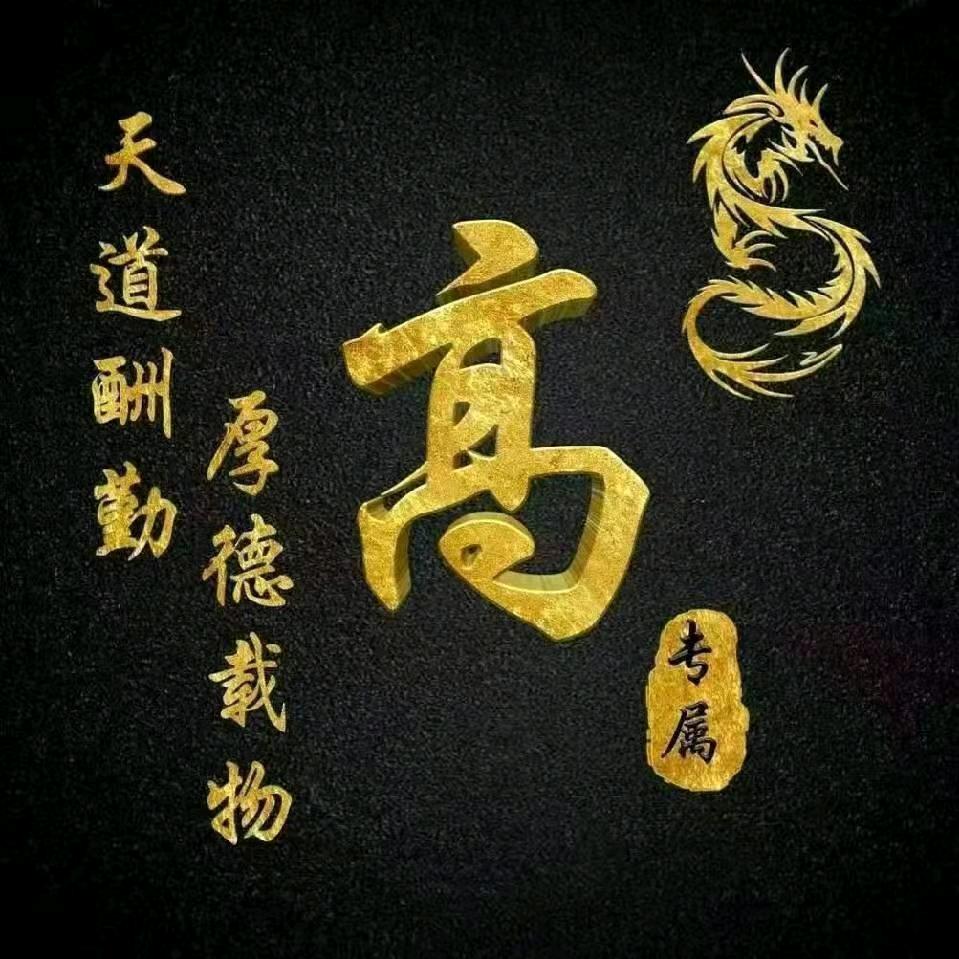 天道酬勤
厚德载物
高
专属